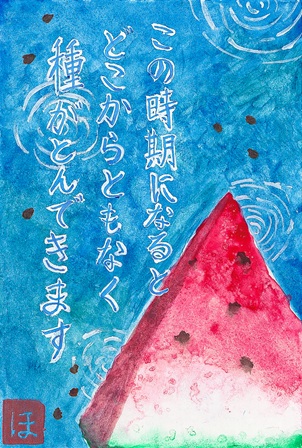 この時期になると
どこからともなく
種がとんできます
ほ